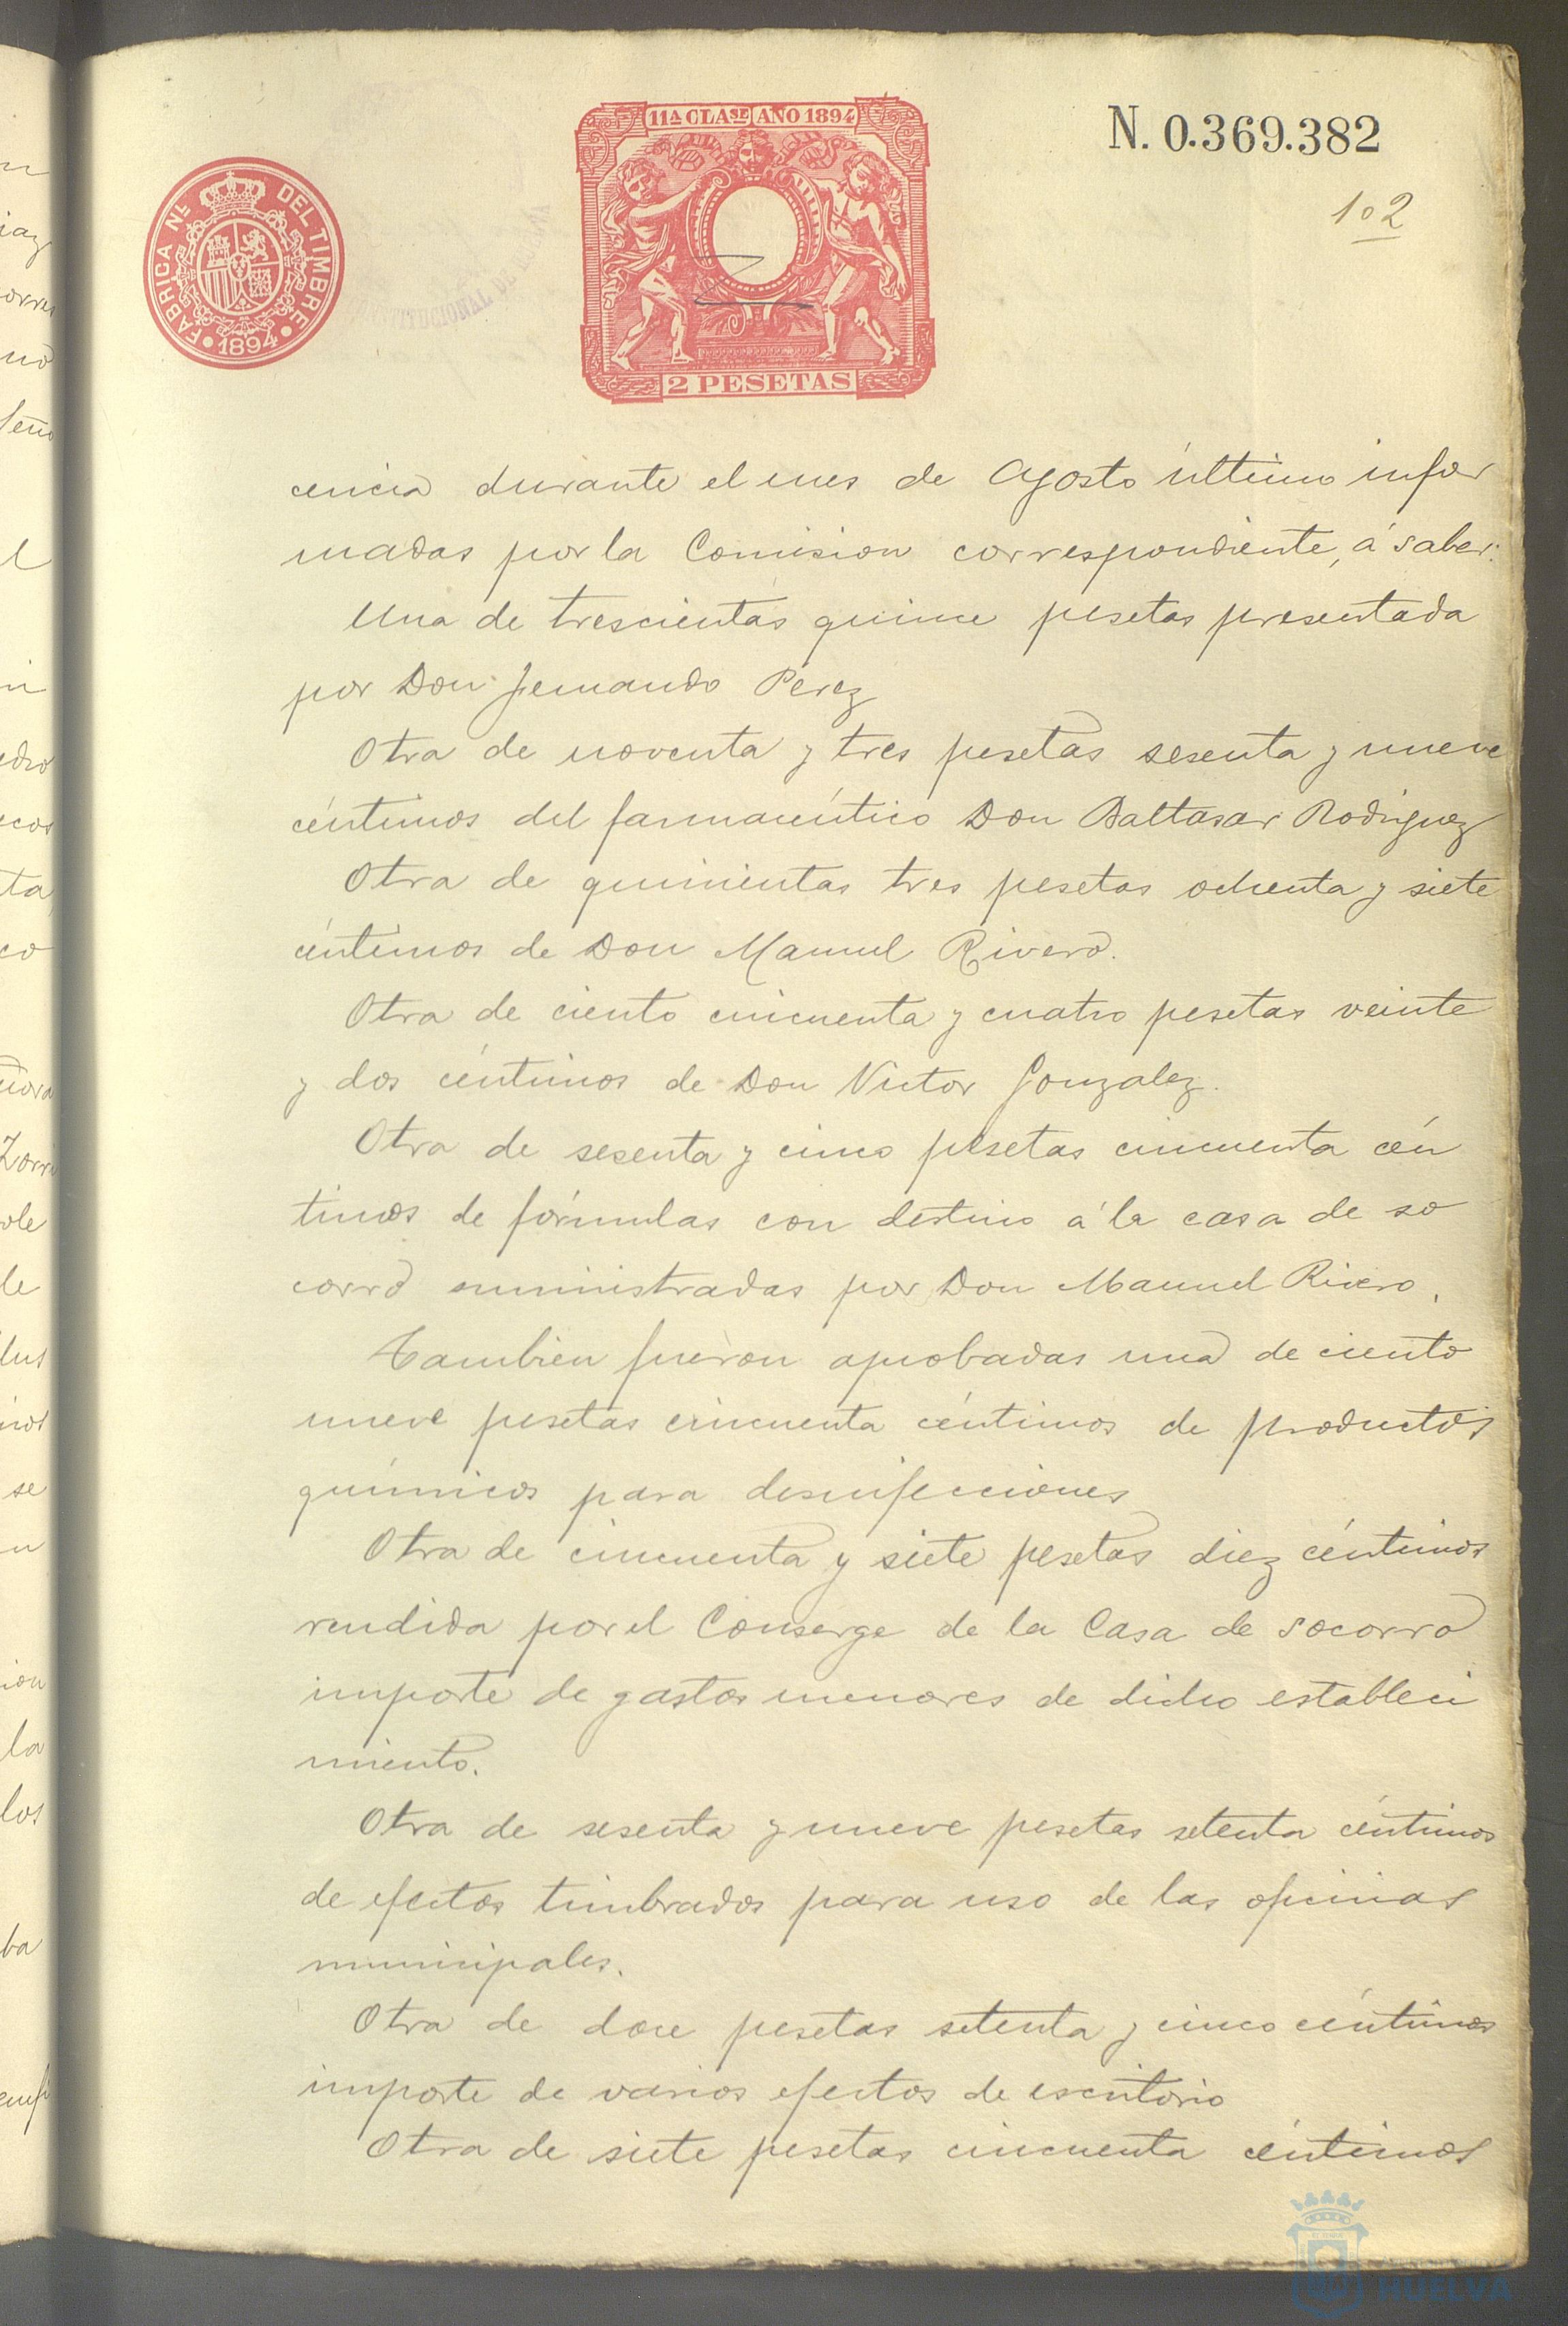 11ª CLASE AÑO 1894
N. 0.369.382
102
FABRICA NL. DEL TIMBRE
1894
2 PESETAS
cencia durante el mes de Agosto último infor
madas por la Comision correspondiente, á saber:
Una de trescientas quince pesetas presentada
por Don Fernando Pérez
Otra de noventa y tres pesetas sesenta y nueve
céntimos del farmacéutico Don Baltasar Rodriguez
Otra de quinientas tres pesetas ochenta y siete
céntimos de Don Manuel Rivero.
Otra de ciento cincuenta y cuatro pesetas veinte
y dos céntimos de Don Victor Gonzalez.
Otra de sesenta y cinco pesetas cincuenta cén
timos de fórmulas con destino á la casa de so
corro suministradas por Don Manuel Rivero.
Tambien fueron aprobadas una de ciento
nueve pesetas cincuenta céntimos de productos
químicos para desinfecciones
Otra de cincuenta y siete pesetas diez céntimos
rendida por el Conserge de la Casa de Socorro
importe de gastos menores de dicho estableci
miento.
Otra de sesenta y nueve pesetas setenta céntimos
de efectos timbrados para uso de las oficinas
municipales.
Otra de doce pesetas setenta y cinco céntimos
importe de varios efectos de escritorio
Otra de siete pesetas cincuenta céntimos
HUELVA